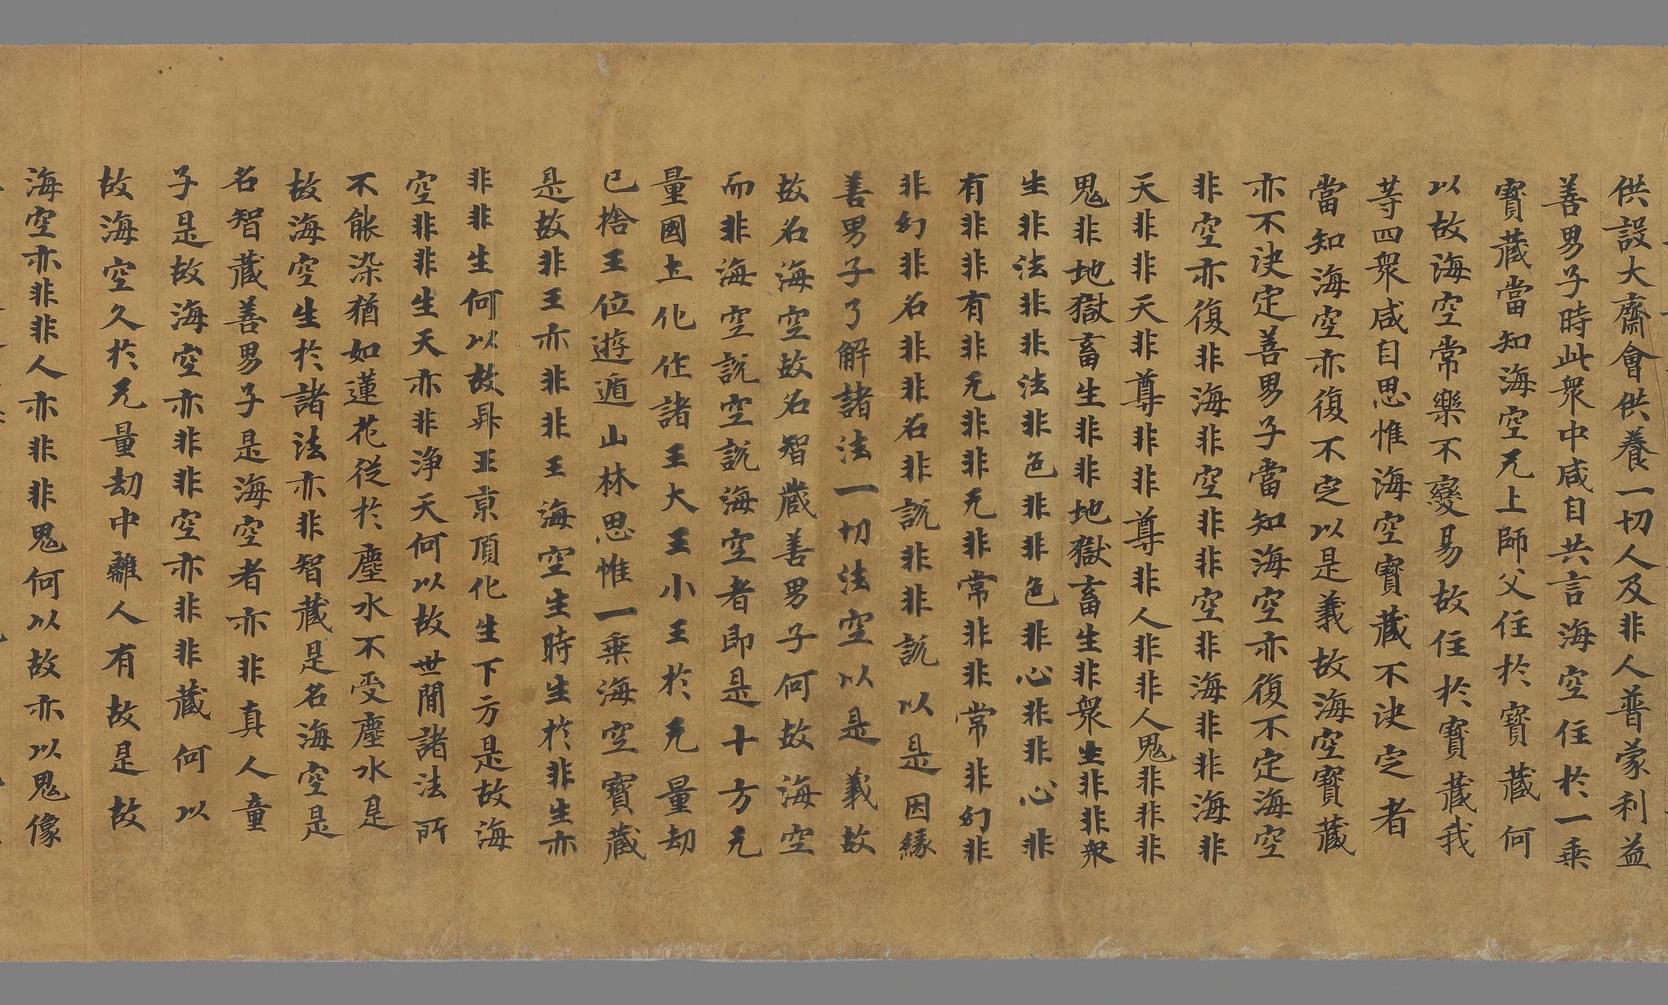 供設大齋會供養一切人及非人普蒙利益
善男子時此衆中咸自共言海空住於一乘
寶藏當知海空无上師父住於寶藏何
以故海空常樂不變易故住於寶藏我
等四衆咸自思惟海空寶藏不决定者
當知海空亦復不定以是義故海空寶藏
亦不决定善男子當知海空亦復不定海空
非空亦復非海非空非非空非海非非海非
天非非天非尊非非尊非人非非人鬼非非非
鬼非地獄畜生非非地獄畜生非衆生非非衆
生非法非非法非色非非色非心非非心非
有非非有非无非非无非常非非常非幻非
非幻非名非非名非説非非説以是因縁
善男子了解諸法一切法空以是義故
故名海空故名智蔵善男子何故海空
而非海空説空説海空者即是十方无
量國土化作諸王大王小王於无量劫
已捨王位遊遁山林思惟一乘海空寶藏
是故非王亦非非王海空生時生於非生亦
非非生何以故昇玉京頂化生下方是故海
空非非生天亦非淨天何以故世間諸法所
不能染猶如蓮花從於塵水不受塵水是
故海空生於諸法亦非智藏是名海空是
名智藏善男子是海空者亦非真人童
子是故海空亦非非空亦非非藏何以
故海空久於无量劫中離人有故是故
海空亦非非人亦非非鬼何以故亦以鬼像